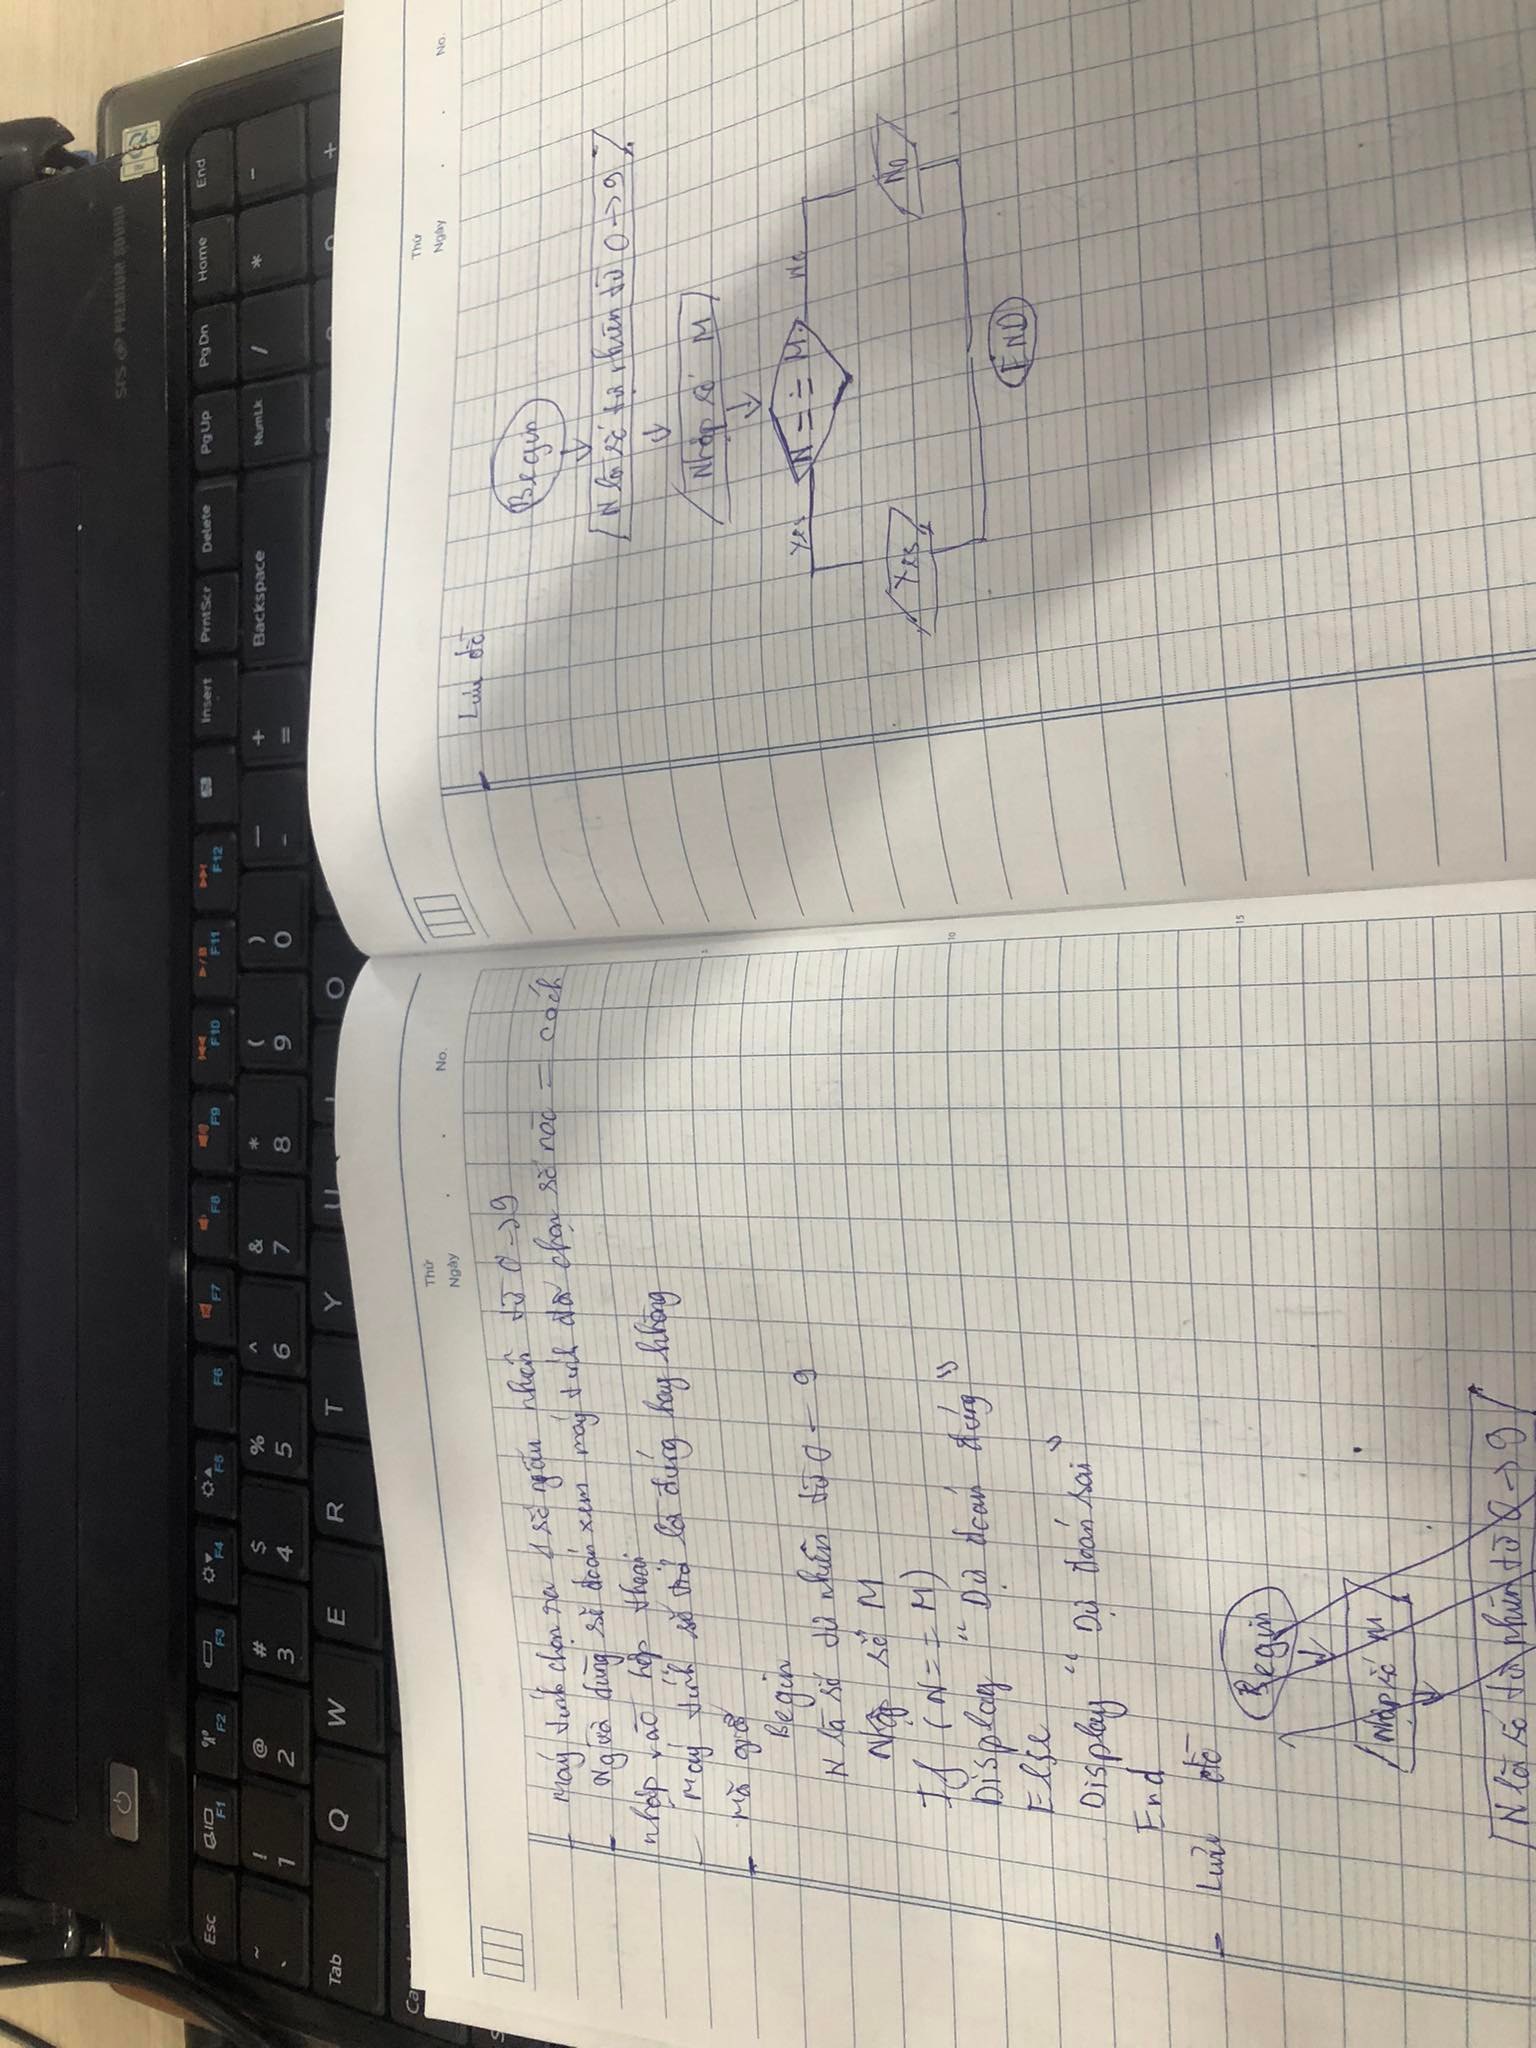 SRS PREMIUM SOUND
Esc F1 F2 F3 F4 F5 F6 F7 F8 F9 F10 F11 F12 Insert PrntScr Delete PgUp PgDn Home End
~ ` ! 1 @ 2 # 3 $ 4 % 5 ^ 6 & 7 * 8 ( 9 ) 0 — - + = Backspace NumLk / * -
Tab Q W E R T Y U I O +
Thứ
Ngày . . No.
- Máy tính chọn ra 1 số ngẫu nhiên từ 0 -> 9
- Người dùng sẽ đoán xem máy tính đã chọn số nào = cách
nhập vào hộp thoại
- Máy tính sẽ trả lời đúng hay không
- Mã giả
Begin
N là số tự nhiên từ 0 - 9
Nhập số M
If (N == M)
Display "Dự đoán đúng"
Else
Display "Dự đoán sai"
End
- Lưu đồ
Begin
Nhập số M
N là số tự nhiên từ 0 -> 9
5
10
15
Thứ
Ngày . . No.
- Lưu đồ
Begin
N là số tự nhiên từ 0 -> 9
Nhập số M
Yes N == M No
Yes No
END